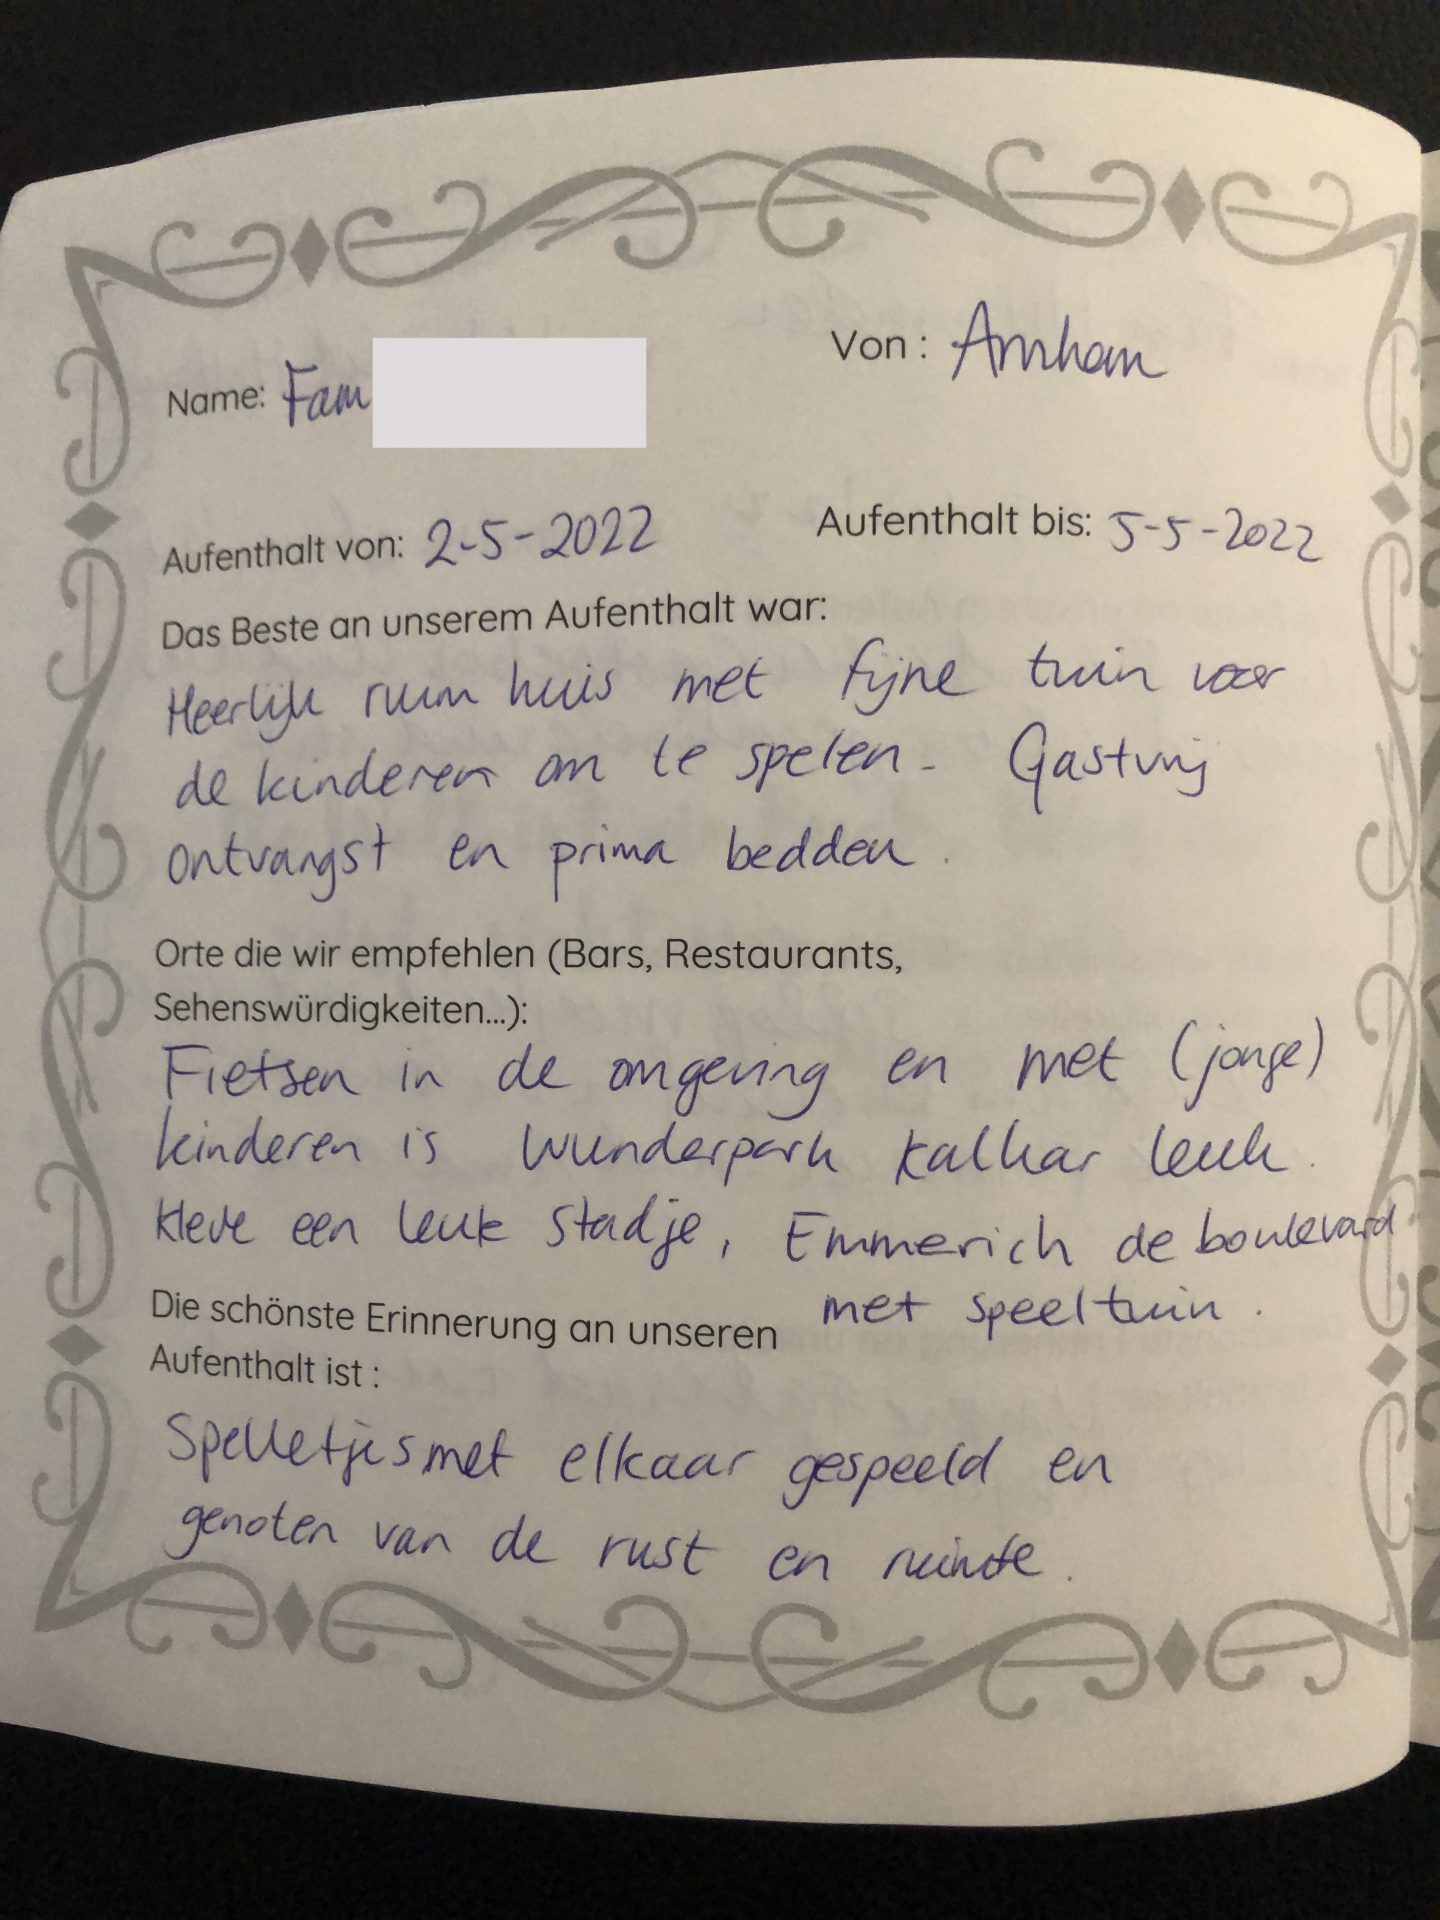 Name: Fam
Von : Arnhem
Aufenthalt von: 2-5-2022
Aufenthalt bis: 5-5-2022
Das Beste an unserem Aufenthalt war:
Heerlijk ruim huis met fijne tuin voor
de kinderen om te spelen. Gastvrij
ontvangst en prima bedden.
Orte die wir empfehlen (Bars, Restaurants,
Sehenswürdigkeiten...):
Fietsen in de omgeving en met (jonge)
kinderen is Wunderpark Kalkar leuk.
Kleve een leuk stadje, Emmerich de boulevard
met speeltuin.
Die schönste Erinnerung an unseren
Aufenthalt ist :
Spelletjes met elkaar gespeeld en
genoten van de rust en ruimte.